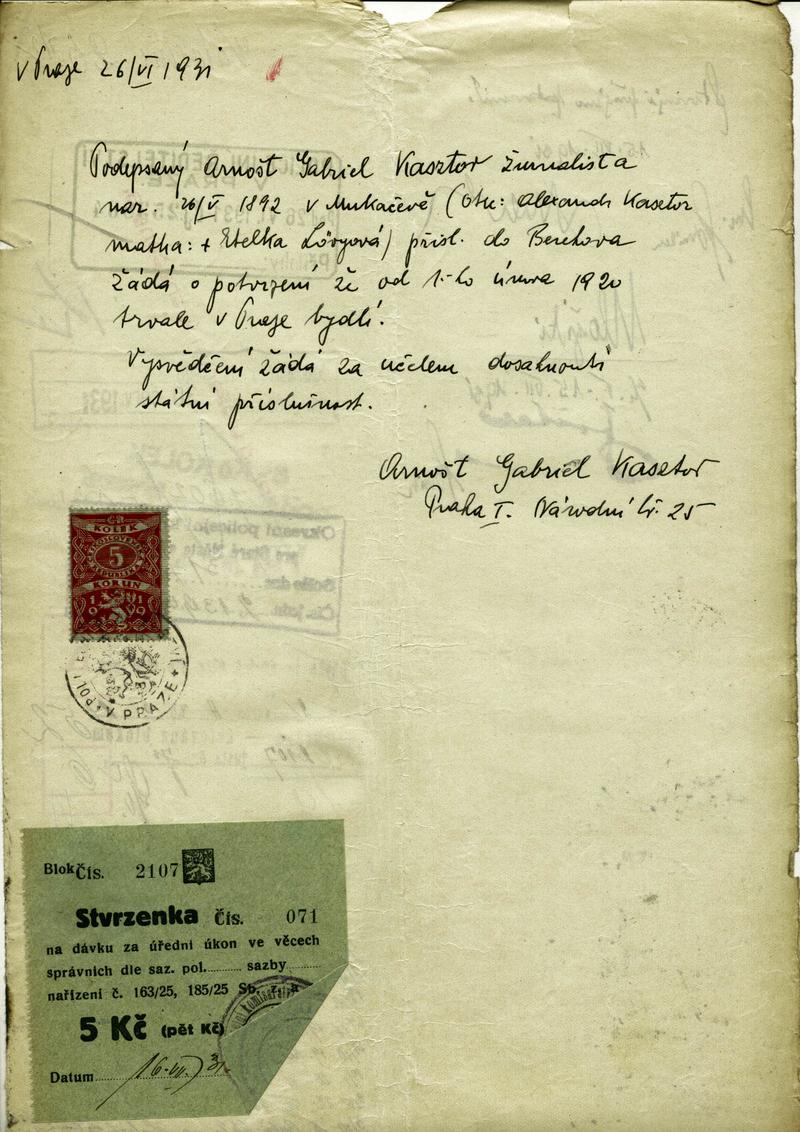 V Praze 26/VI 1931
Podepsaný Arnošt Gabriel Kasztor žurnalista
nar. 26/V 1892 v Mukačevě (otec: Alexandr Kasztor
matka: + Etelka Lövyová) přísl. do Berehova
žádá o potvrzení že od 1-ho února 1920
trvale v Praze bydlí.
Vysvědčení žádá za účelem dosáhnouti
státní příslušnost.
Arnošt Gabriel Kasztor
Praha I. Národní tř. 25
KOLEK
5
KORUN
1919
V PRAZE
Blok Čís. 2107
Stvrzenka čís. 071
na dávku za úřední úkon ve věcech
správních dle saz. pol. sazby
nařízení č. 163/25, 185/25 Sb. z. a
5 Kč (pět Kč)
Datum 16.VII.31